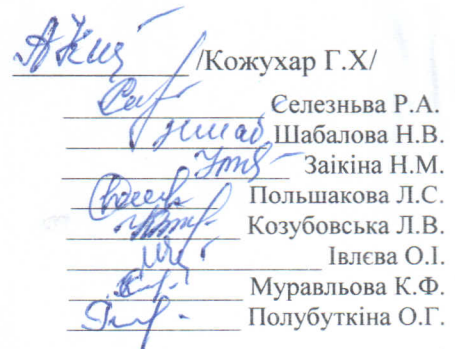 /Кожухар Г.Х/
Єелезньва Р.А.
Шабалова Н.В.
Заікіна Н.М.
Польшакова Л.С.
Козубовська Л.В.
Івлєва О.І.
Муравльова К.Ф.
Полубуткіна О.Г.